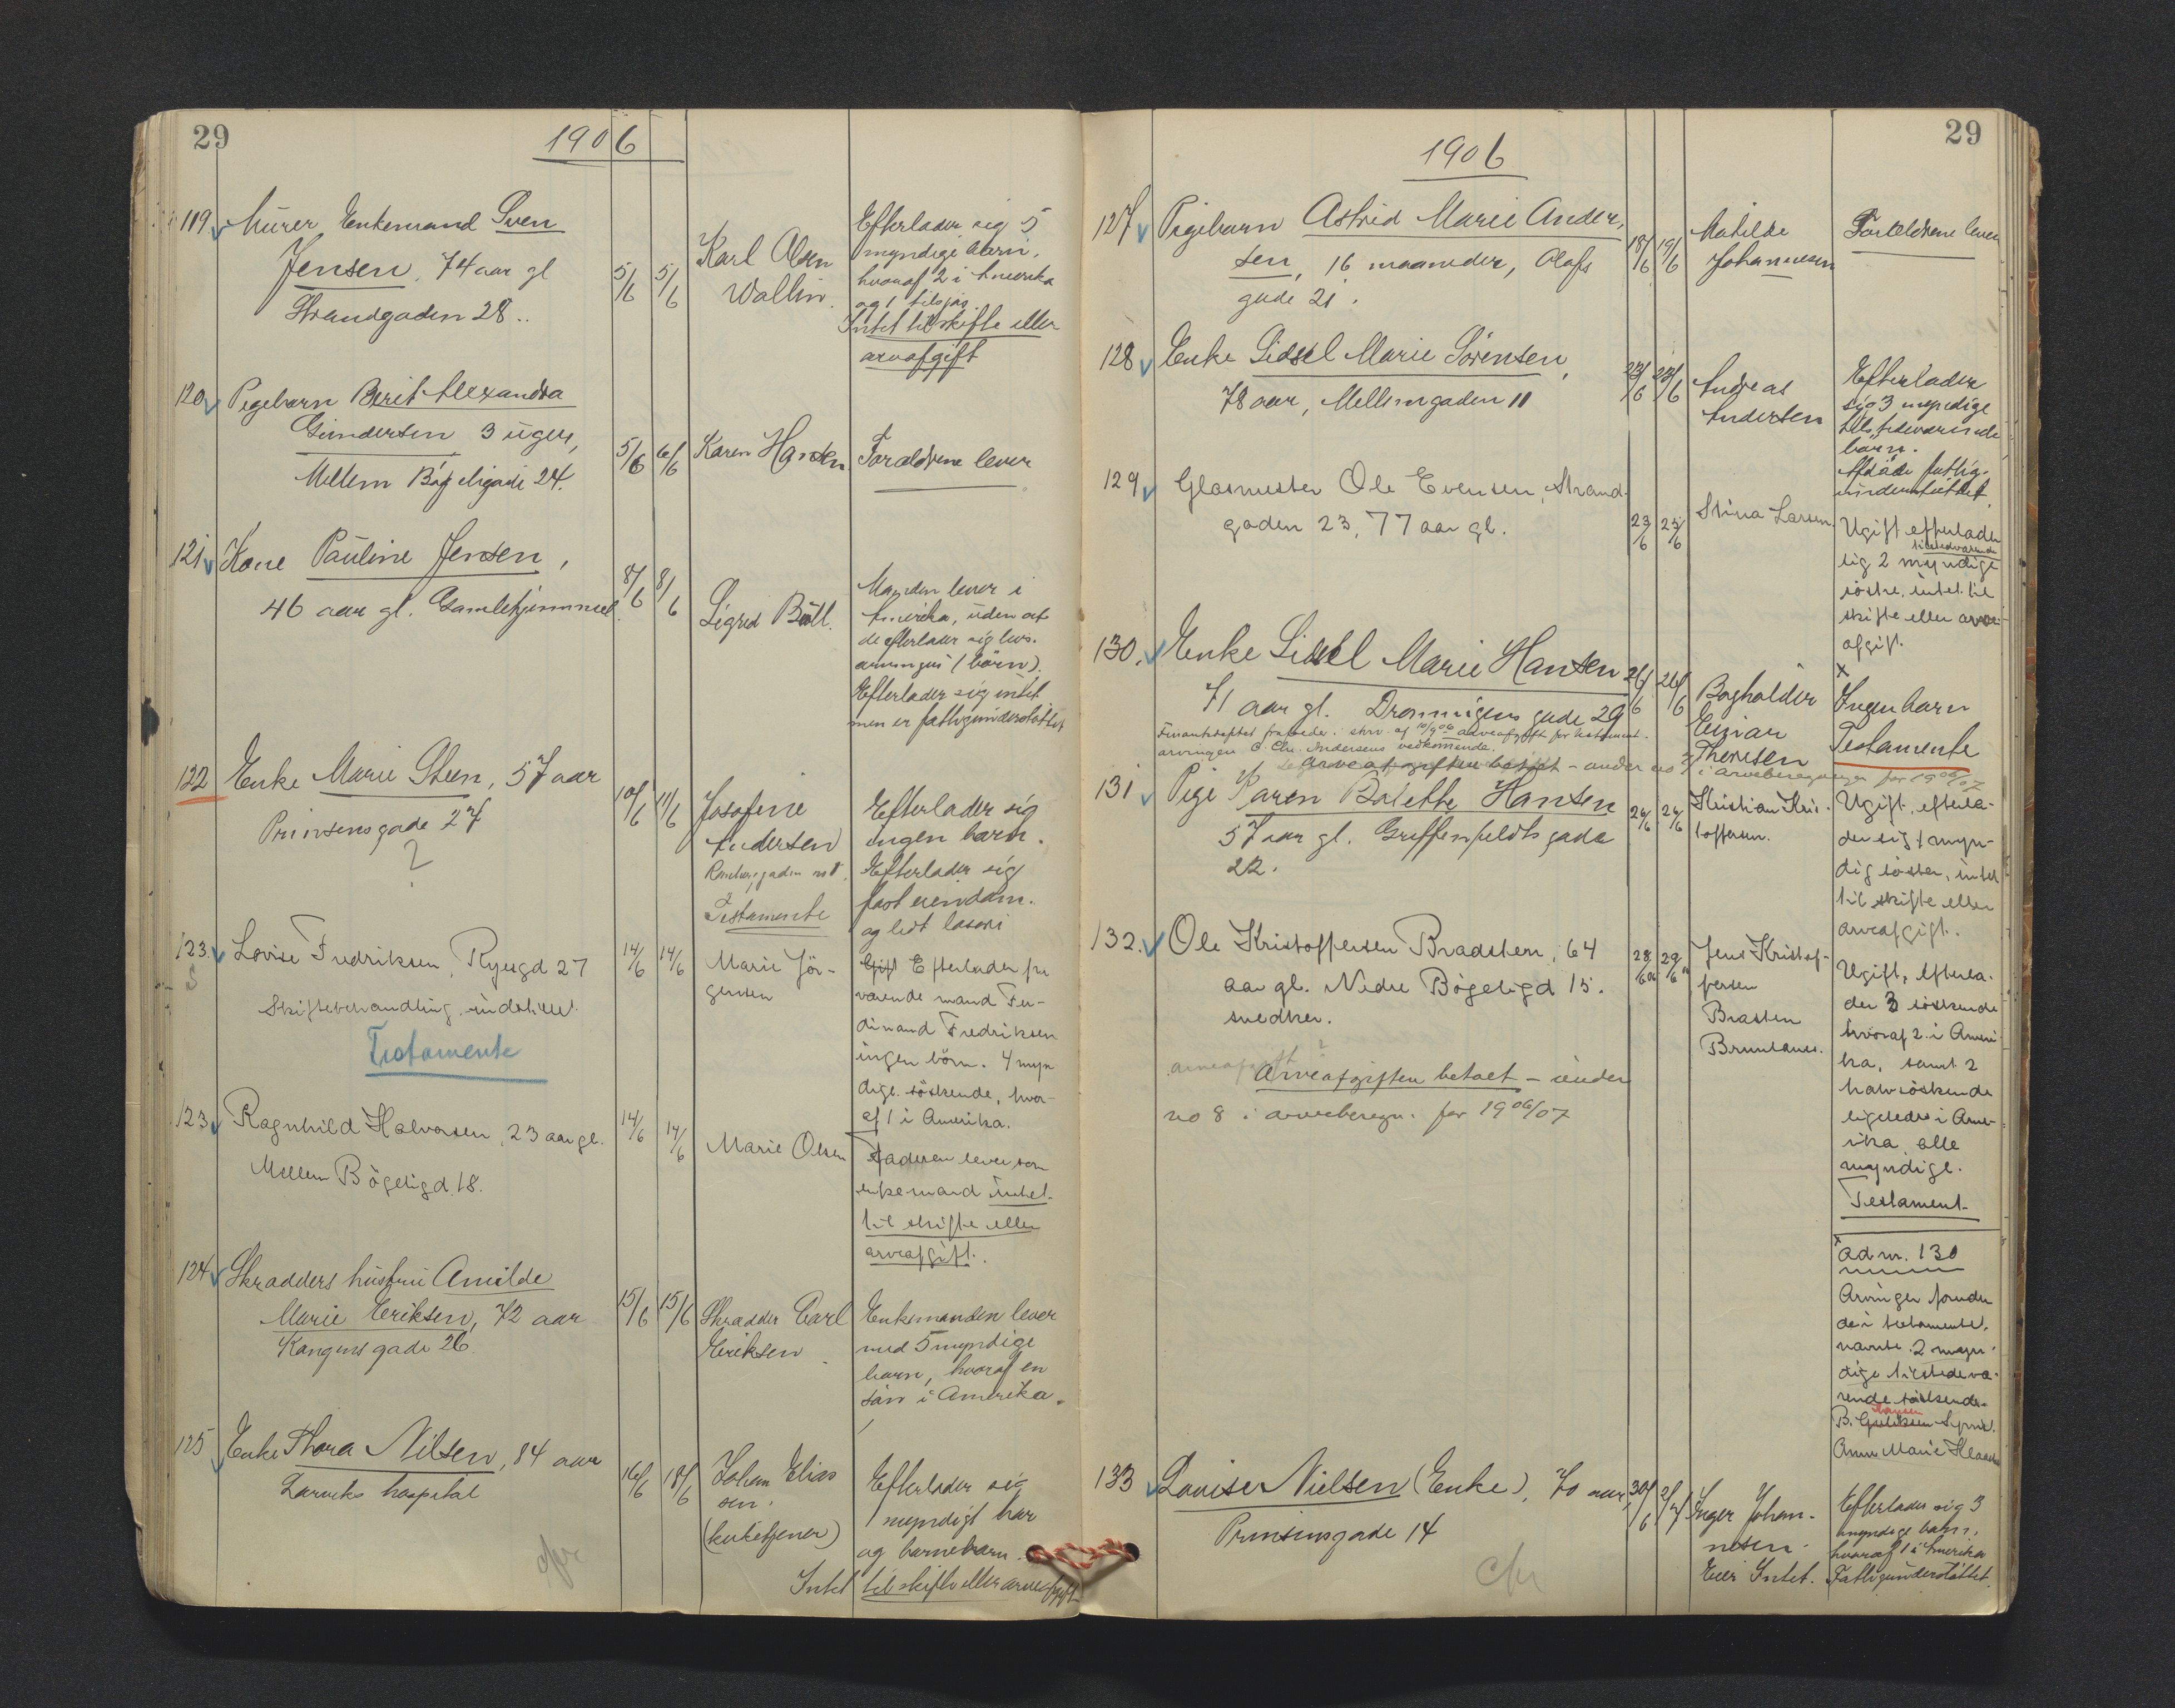 29
1906
119 Murer Enkemand Sven
Jensen, 74 aar gl
Strandgaden 28.
5/6 5/6
Karl Olsen
Wallin.
Efterlader sig 5
myndige børn,
hvoraf 2 i Amerika
og 1 tilsjøs.
Intet til skifte eller
arveafgift
120 Pigebarn Berit Alexandra
Gundersen 3 uger,
Mellem Bøgeligade 24.
5/6 6/6
Karen Hansen
Forældrene lever
121 Kone Pauline Jensen,
46 aar gl. Gamlehjemmet
8/6 8/6
Sigrid
Manden lever i
Amerika, uden at
de efterlader sig livs-
arvinger (børn).
Efterlader sig intet
men er fattigunderstøttet
122 Enke Marie Steen, 57 aar
Prinsensgade 27
?
10/6 11/6
Josefine
Andersen
Testamente
Efterlader sig
ingen barn.
Efterlader sig
fast eiendom.
og lidt løsøre
123. Lovise Fredriksen, Ryesgd 27
S
Skiftebehandling indstillet.
Testamente
14/6 14/6
Marie Jör-
gensen
Gift Efterlader fra
værende mand Fer-
dinand Fredriksen
ingen börn. 4 myn
dige söskende, hvor-
af 1 i Amerika.
123 Ragnhild Halvorsen, 23 aar gl.
Mellem Bögeligd. 18.
14/6 14/6
Marie Olsen
Faderen lever som
enkemand intet
til skifte eller
arveafgift.
124 Skradders hustru Amilde
Marie Eriksen, 72 aar
Kongens gade 26
15/6 15/6
Skradder Carl
Eriksen
Enkemanden lever
med 5 myndige
barn, hvoraf en
søn i Amerika.
125 Enke Thora Nilsen, 84 aar
Larviks hospital
16/6 18/6
Johan Elias
sen.
(kirketjener)
Efterlader sig
1 myndigt bar
og barnebarn.
Intet til skifte eller arveafgift
cfr
29
1906
127 Pigebarn Astrid Marie Ander,
sen, 16 maaneder, Olafs
gade 21.
18/6 19/6
Matilde
Johannesen
Forældrene lever
128 Enke Sidsel Marie Sörensen,
78 aar, Mellemgaden 11
23/6 23/6
Andreas
Andersen
Efterlader
sig 3 myndige
tilstedeværende
børn.
Afdøde fattig-
understøttet
129 Glasmester Ole Evensen, Strand-
gaden 23, 77 aar gl.
23/6 25/6
Stina Larsen.
Ugift efterlader
tilstedværende
sig 2 myndige
söstre, intet til
skifte eller arve-
afgift.
130. Enke Sidsel Marie Hansen
71 aar gl. Dronningens gade 29
Finantsdeptet frafalder i skriv. af 10/9 06 arveafgift for testament-
arvingen C. Chr. Andersens vedkommende.
arveafgiften betalt - under no 7 i arveberegninger for 1906/07
26/6 26/6
Bogholder
Einar
Thoresen
x
Ingen barn
Testamente
131 Pige Karen Bolette Hansen
57 aar gl. Griffenfeldts gade
22.
26/6 26/6
Kristian Kris-
toffersen.
Ugift, efterla-
der sig 1 myn-
dig söster, intet
til skifte eller
arveafgift.
132. Ole Kristoffersen Bradsten, 64
aar gl. Nedre Bögeligd 15.
snedker.
arveafgift ?
Arveafgiften betalt - under
no 8 i arveberegn. for 1906/07
28/6 06 29/6 06
Jens Kristof-
fersen
Brasten
Brunlanes.
Ugift, efterla-
der 3 söskende
hvoraf 2 i Ameri
ka, samt 2
halvsöskende
ligeledes i Ame-
rika, alle
myndige.
Testament
x ad nr. 130
Arvinger foruden
de i testamentet
nævnte 2 myn-
dige tilstedeva-
rende söskende
Hansen
Anne Marie
133 Lovise Nielsen (Enke), 70 aar,
Prinsensgade 14
30/6 2/7
Inger Johan-
nesen.
Eier Intet.
Efterlader sig 3
myndige barn,
hvoraf 1 i Amerika
Fattigunderstøttet.
cfr